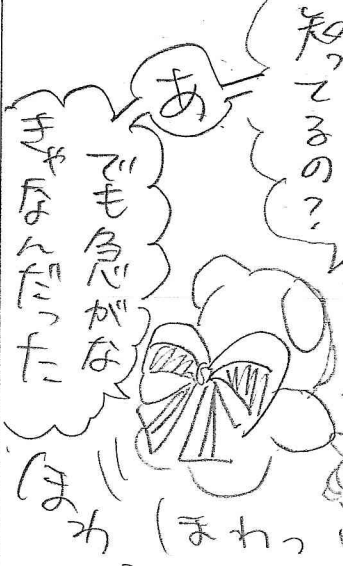 知ってるの？
あ
でも急がな
きゃなんだった
ほわっ
ほわ